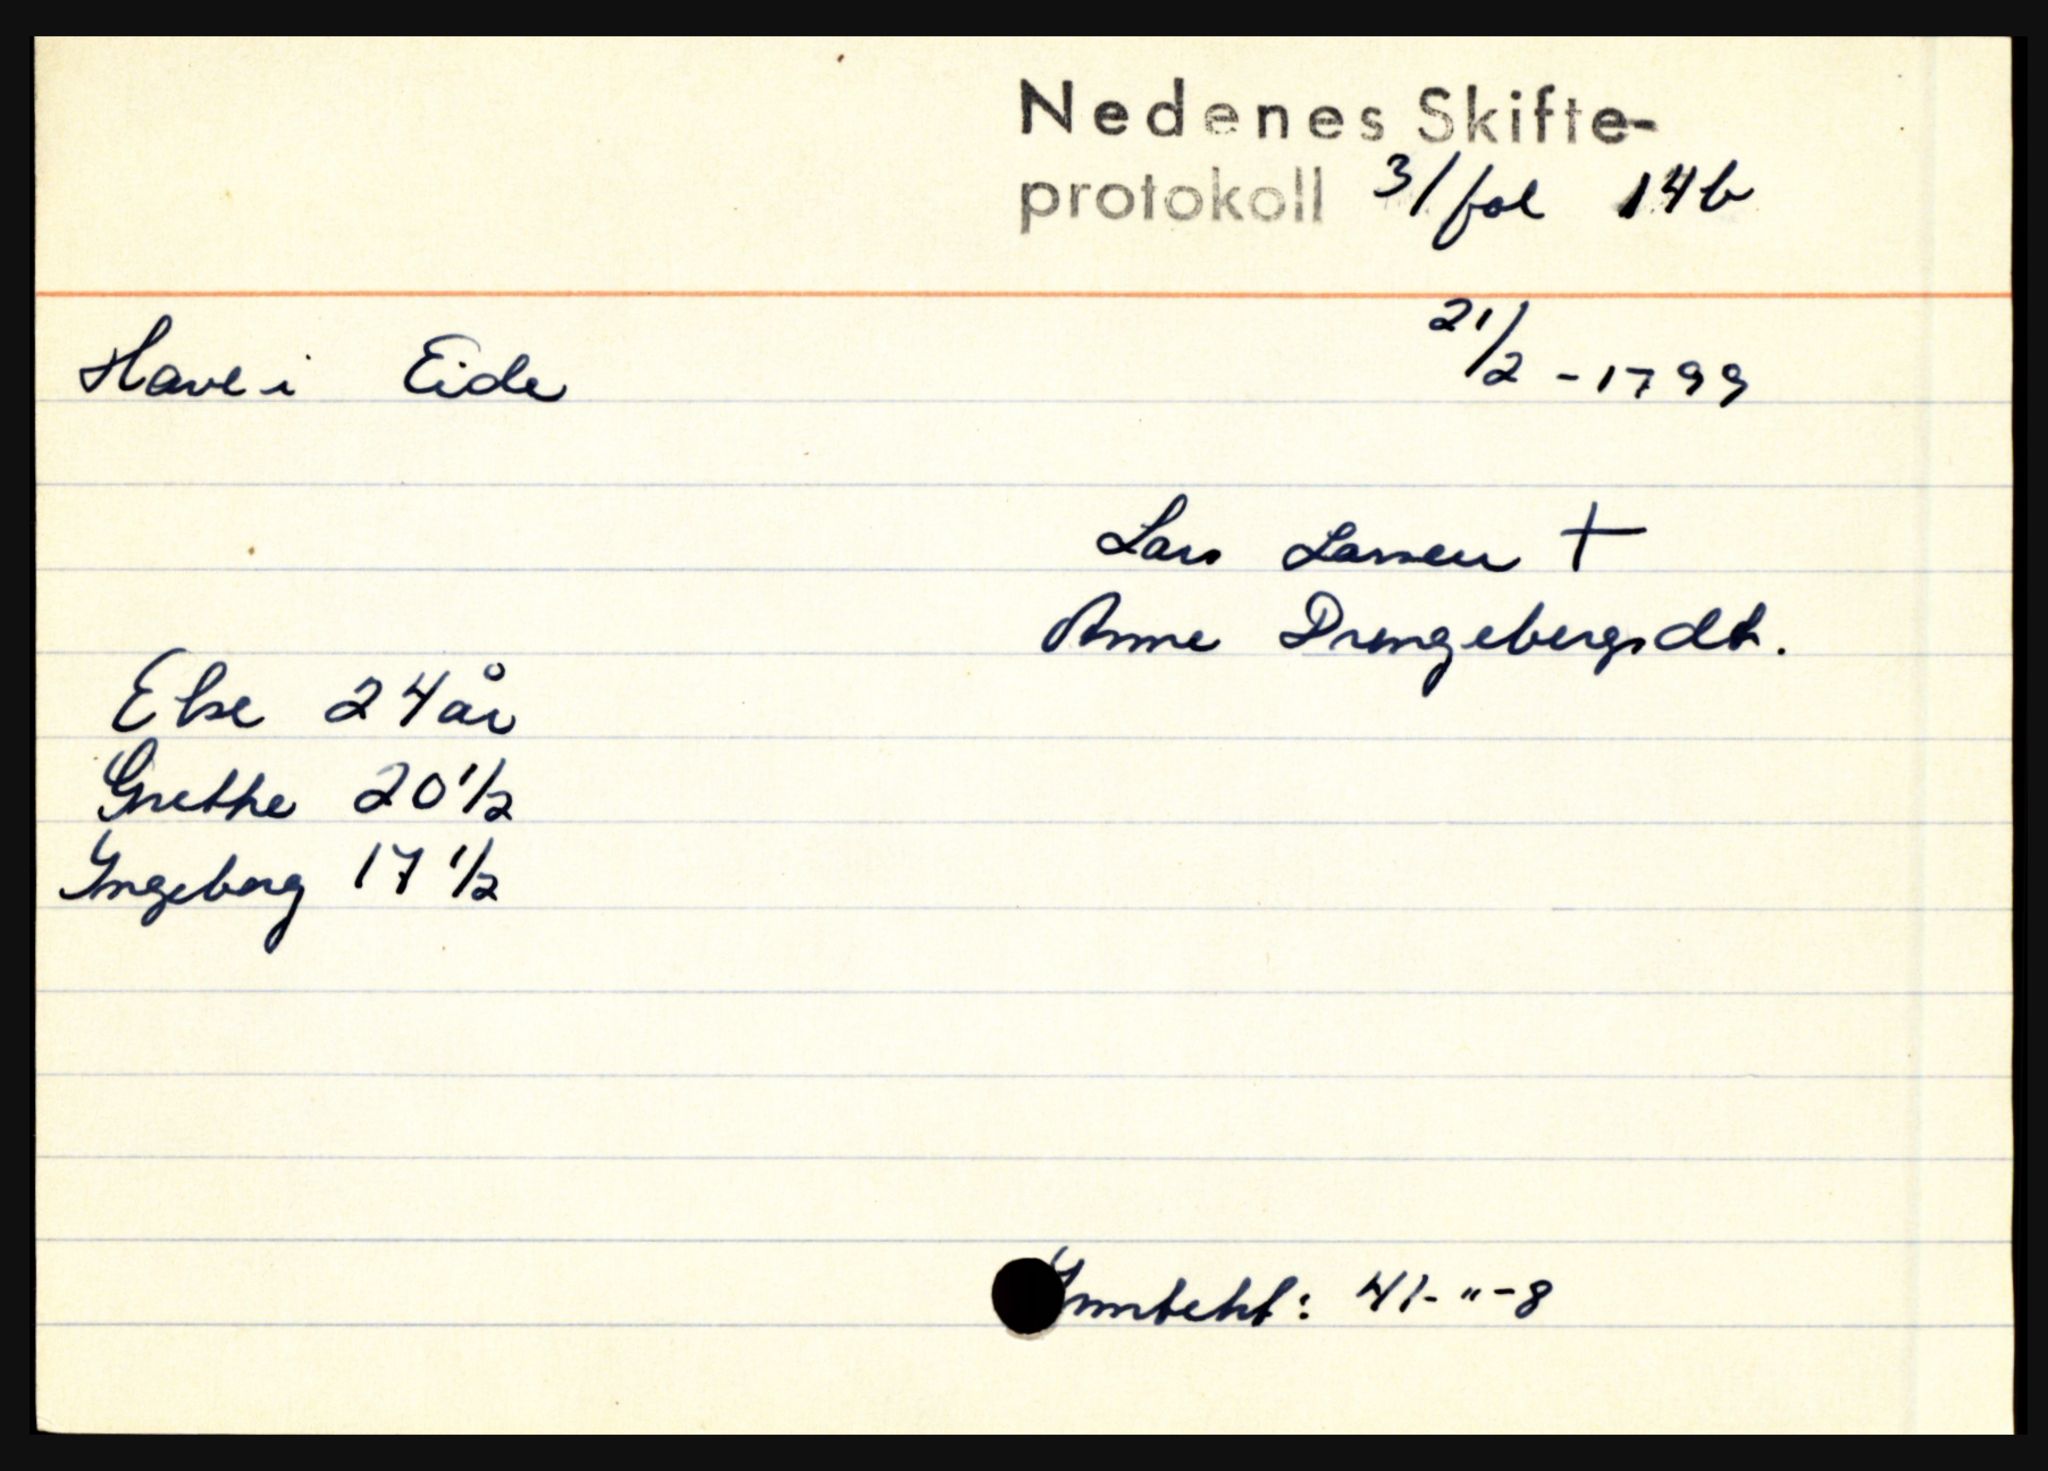 Nedenes Skifte-
protokoll 3/fol 14b
Have i Eide 21/2 - 1799
Lars Larsen +
Anne Drengebergsdt.
Else 24 år
Grethe 20 1/2
Yngeborg 17 1/2
Inntekt: 41-"-8